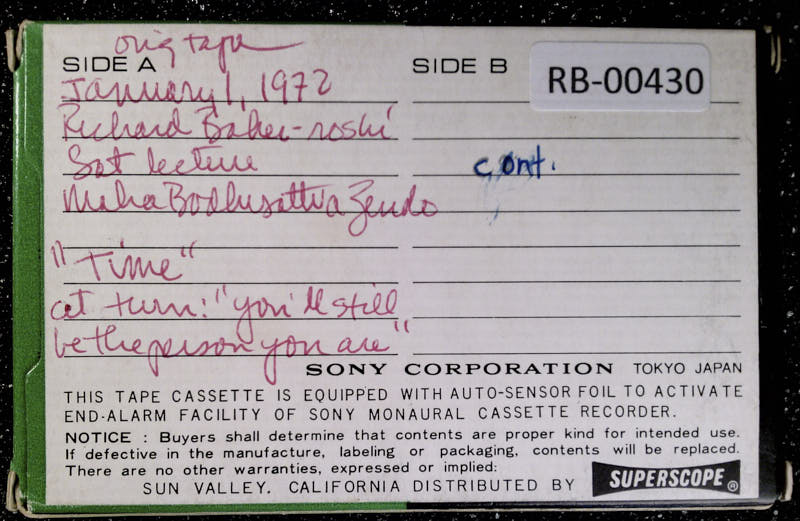 orig tape
SIDE A
SIDE B
RB-00430
January 1, 1972
Richard Baker-roshi
Sat lecture
cont.
Maha Bodhisattva Zendo
"Time"
at turn: "you'll still
be the person you are"
SONY CORPORATION TOKYO JAPAN
THIS TAPE CASSETTE IS EQUIPPED WITH AUTO-SENSOR FOIL TO ACTIVATE
END-ALARM FACILITY OF SONY MONAURAL CASSETTE RECORDER.
NOTICE : Buyers shall determine that contents are proper kind for intended use.
If defective in the manufacture, labeling or packaging, contents will be replaced.
There are no other warranties, expressed or implied:
SUN VALLEY. CALIFORNIA DISTRIBUTED BY SUPERSCOPE®